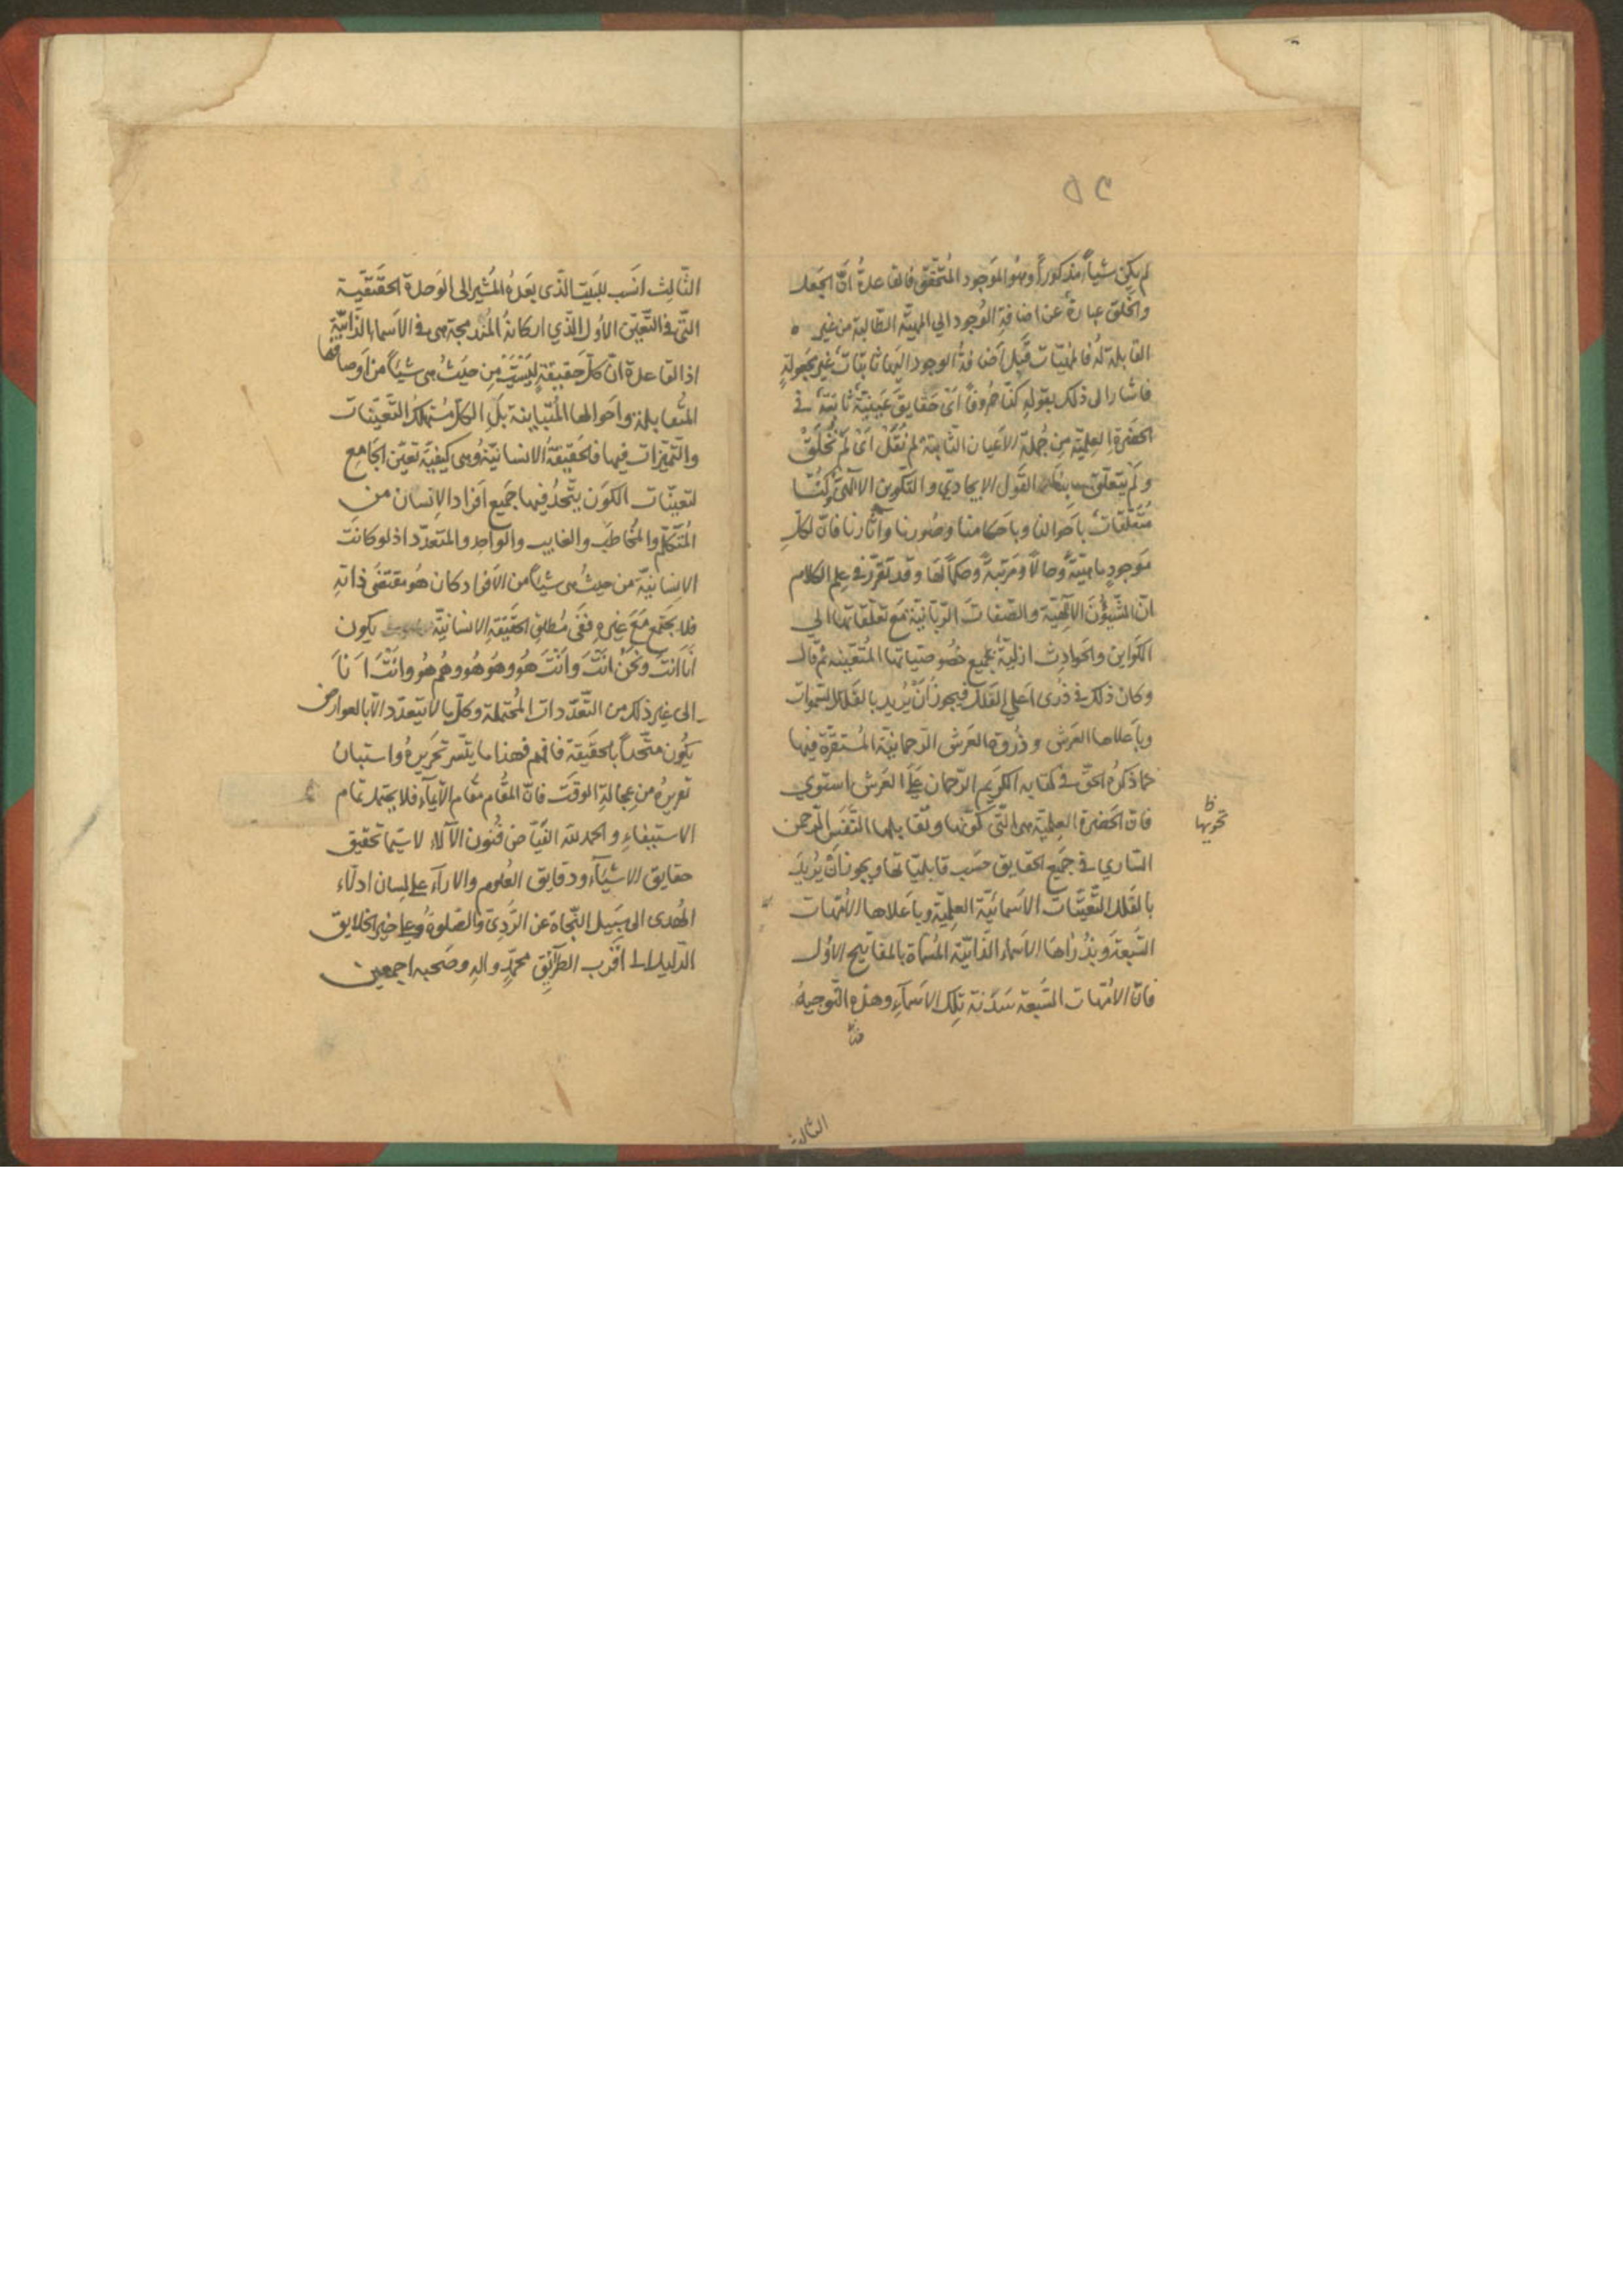 ٥٢
لم يكن شيأ مذكورا وهو الموجود المتحقق فالقاعدة ان الجعل
والخلق عبارة عن اضافة الوجود الى المهية الطالبة من غير
القابلة له فالمهيات قبل اضافة الوجود اليها ثابتات غير مجعولة
فاشار الى ذلك بقوله كنا حروفا اى حقايق غيبية ثابتة فى
الحضرة العلمية من جملة الاعيان الثابتة لم نقل اى لم نخلق
ولم يتعلق بنا القول الايجادي والتكوين الالهى وكنا
متعلقات باحوالنا وباحكامنا وصورنا وآثارنا فان لكل
موجود ماهية وحالا ومرتبة وحكما لها وقد تقرر فى علم الكلام
ان الشيؤن الالهية والصفات الربانية مع تعلقاتها الى
الكواين والحوادث ازلية بجميع خصوصياتها المتعينة ثم قال
وكان ذلك فى ذرى اعلى القلل فيجوز ان يريد بالقلل السموات
وباعلاها العرش وذروة العرش الرحمانية المستقرة فيها
كما ذكره الحق فى كتابه الكريم الرحمان على العرش استوى
فان الحضرة العلمية هى التى كونها وتقابلها النفس الرحمن
تحويها
السارى فى جميع الحقايق حسب قابلياتها ويجوز ان يريد
بالقلل التعينات الاسمائية العلمية وباعلاها الامهات
السبعة وبذراها الاسماء الذاتية المسماة بالمفاتيح الاول
فان الامهات السبعة سدنة تلك الاسماء وهذه التوجيه
الثالث
الثالث انسب للبيت الذى بعده المشير الى الوحدة الحقيقية
التى فى التعين الاول الذي اركانه المندمجة هى فى الاسماء الذاتية
اذ القاعدة ان كل حقيقة ليست من حيث هى شيأ من اوصافها
المتقابلة واحوالها المتباينة بل الكل مستهلك التعينات
والتميزات فيها فالحقيقة الانسانية وهى كيفية تعين الجامع
لتعينات الكون يتحد فيها جميع افراد الانسان من
المتكلم والمخاطب والغايب والواحد والمتعدد اذ لو كانت
الانسانية من حيث هى شيأ من الافراد كان هو مقتضى ذاته
فلا يجتمع مع غيره ففى مطلق الحقيقة الانسانية يكون
انا انت ونحن انت وانت هو وهو هو وهم هو وانت انا
الى غير ذلك من التعددات المحتملة وكل ما لا يتعدد الا بالعوارض
يكون متحدا بالحقيقة فافهم فهذا ما يتسر تحريره واستبان
تعريره من عجالة الوقت فان المقام مقام الايماء فلا يحتمل تمام
الاستيفاء والحمد لله الفياض فنون الآلاء لا سيما تحقيق
حقايق الاشياء ودقايق العلوم والاراء على لسان ادلاء
الهدى الى سبيل النجاة عن الردى والصلوة على خير الخلايق
الدليل الى اقرب الطرايق محمد واله وصحبه اجمعين